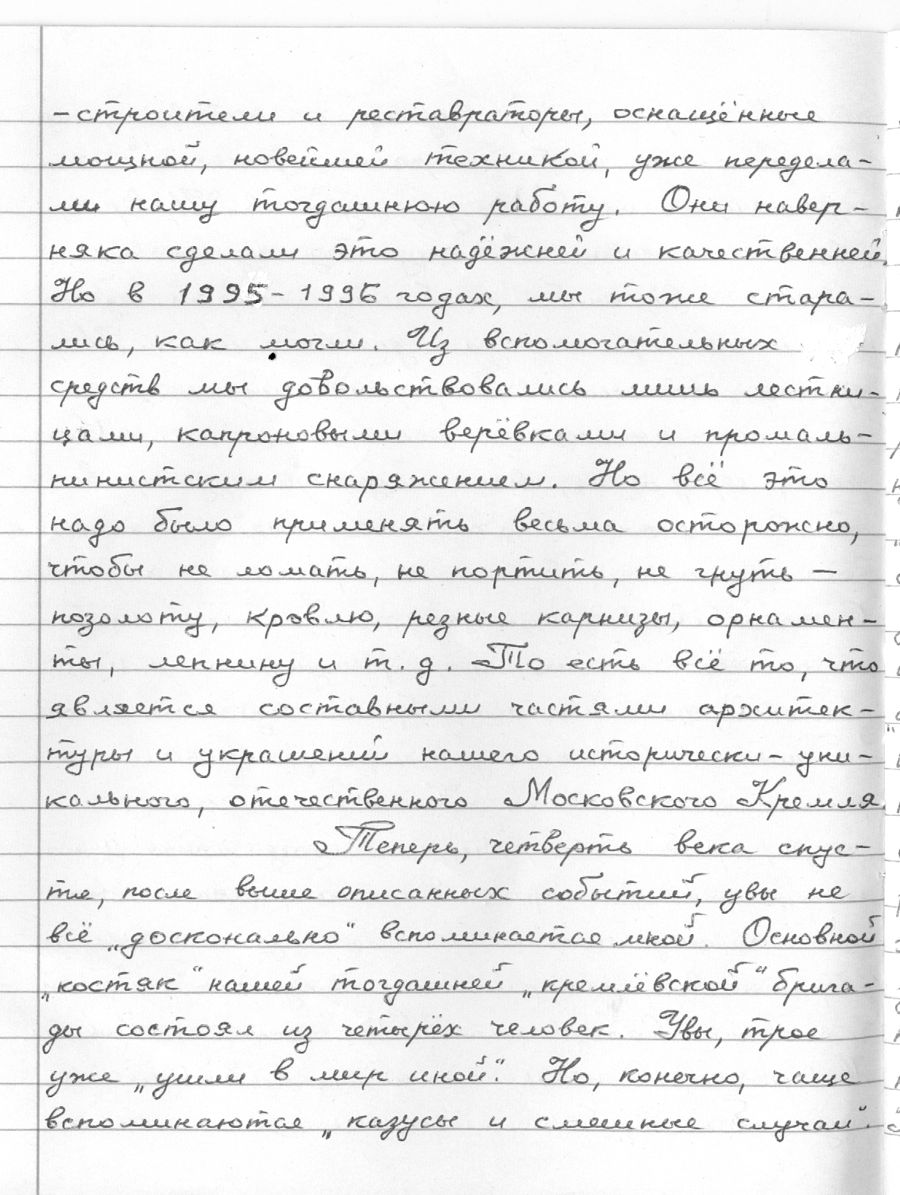 -строители и реставраторы, оснащённые
мощной, новейшей техникой, уже передела-
ли нашу тогдашнюю работу. Они навер-
няка сделали это надёжней и качественней.
Но в 1995-1996 годах, мы тоже стара-
лись, как могли. Из вспомогательных
средств мы довольствовались лишь лестни-
цами, капроновыми верёвками и промаль-
пинистским снаряжением. Но всё это
надо было применять весьма осторожно,
чтобы не ломать, не портить, не гнуть —
позолоту, кровлю, резные карнизы, орнамен-
ты, лепнину и т.д. То есть всё то, что
является составными частями архитек-
туры и украшений нашего исторически-уни-
кального, отечественного Московского Кремля.
Теперь, четверть века спус-
тя, после выше описанных событий, увы не
всё „доскональнo" вспоминается мной. Основной
„костяк" нашей тогдашней „кремлёвской" брига-
ды состоял из четырёх человек. Увы, трое
уже „ушли в мир иной". Но, конечно, чаще
вспоминаются „казусы и смешные случаи".